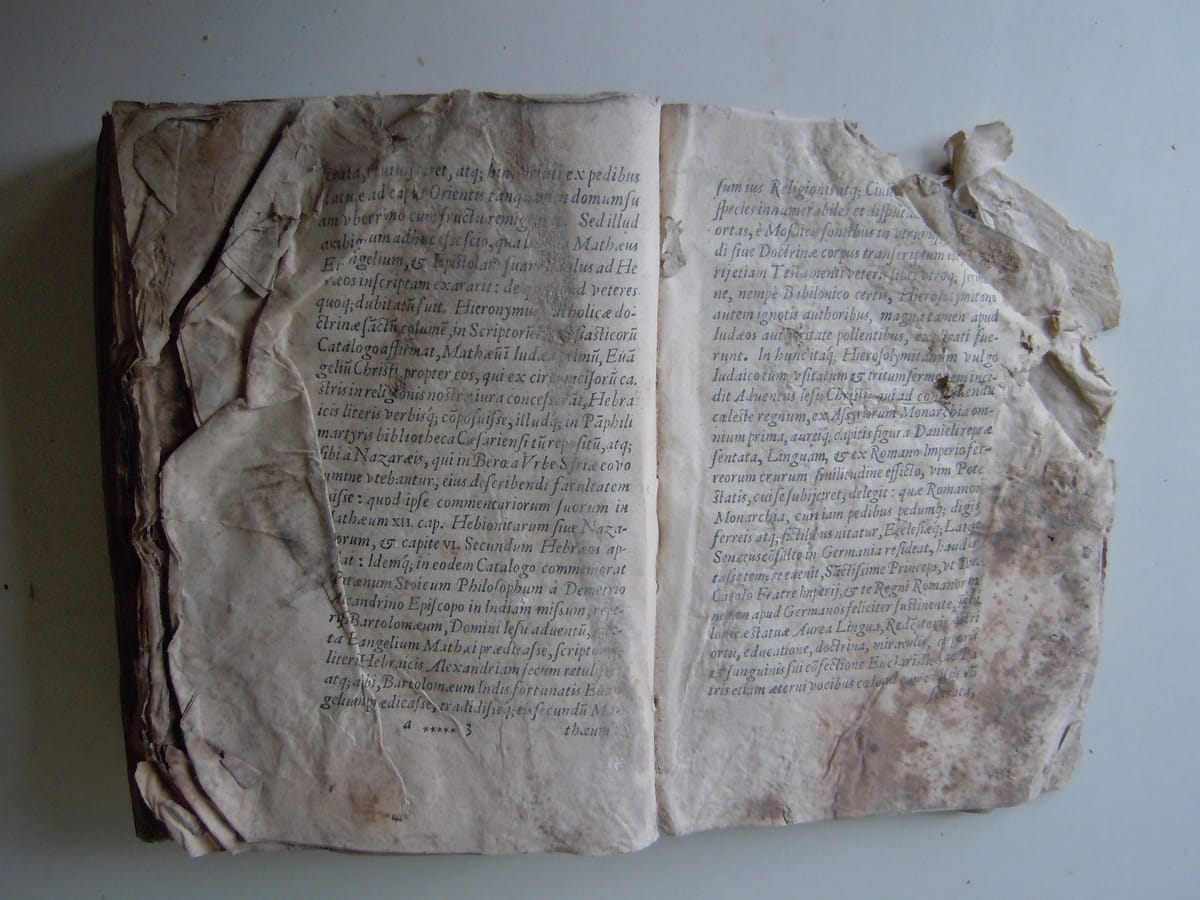 atq; hinc veluti ex pedibus
statuæ ad caput Orientis domum su
am vberrimo cum fructu Sed illud
adhuc esse scio, Mathæus
& Epistolam Paulus ad He
ræos inscriptam exararit: de veteres
quoq; dubitatũ fuit. Hieronymus doctrinæ do-
ctrinæ sãctũ columẽ, in Scriptorũ Ecclesiasticorũ
Catalogo affirmat, Mathæũ Iudæa primũ, Euã
geliũ Christi propter eos, qui ex circumcisorũ ca
stris in religionis nostræ iura concesserãt, Hebra
icis literis verbisq; cõposuisse, illudq; in Pãphili
martyris bibliotheca Cæsariensi tũ repositũ, atq;
sibi a Nazaræis, qui in Berœa Vrbe Syriæ eo vo
umine vtebantur, eius describendi facultatem
uisse: quod ipse commentariorum suorum in
athæum XII. cap. Hebionitarum siue Naza-
orum, & capite VI. Secundum Hebræos ap-
lat: Idemq; in eodem Catalogo commemorat
Pantænum Stoicum Philosophum à Demetrio
Alexandrino Episcopo in Indiam missum, repe-
Bartolomæum, Domini Iesu aduentũ,
ta Euangelium Mathæi prædicasse, scriptum
literis Hebraicis Alexandriam secum retulisse
atq; ibi, Bartolomæum Indis fortunatis Euan
gelium prædicasse, tradidisseq; eis secundũ Ma-
a ***** 3 thæum
sum ius Religionis atq; Ciuil
species innumerabiles et disput
ortas, è Mosaicæ fontibus in vtrumq;
di siue Doctrinæ corpus transcriptum
rijetiam Testamenti veteris libri vtroq;
ne, nempè Babilonico certis, Hierosolymitano
autem ignotis authoribus, magna tamen apud
Iudæos autoritate pollentibus, explicati fue-
runt. In hunc itaq; Hierosolymitanum vulgo
Iudaico tum vsitatum & tritum sermonem inci-
dit Aduentus Iesu Christi qui ad
cœleste regnum, ex Assyriorum Monarchia om-
nium prima, aureiq; capitis figura Danieli repræ
sentata, Linguam, & ex Romano Imperio fer-
reorum crurum similitudine efficto, vim Pote
statis, cui se subijceret, delegit: quæ Romanor
Monarchia, cum iam pedibus pedumq; digit
ferreis atq; fictilibus nitatur, Ecclesiæq; Latinæ
Senatuscõsulto in Germania resideat, haud
tasse temere euenit, Sãctissime Princeps, vt
Carolo Fratre Imperij, & te Regni Romanorum
nomen apud Germanos feliciter sustinente,
lonicæ statuæ Aurea Lingua, Redẽptoris nostri
ortu, educatione, doctrina, miraculis, corporis
& sanguinis sui cõfectione Eucharistiæ, ac Pa
tris etiam æterni vocibus
serata,